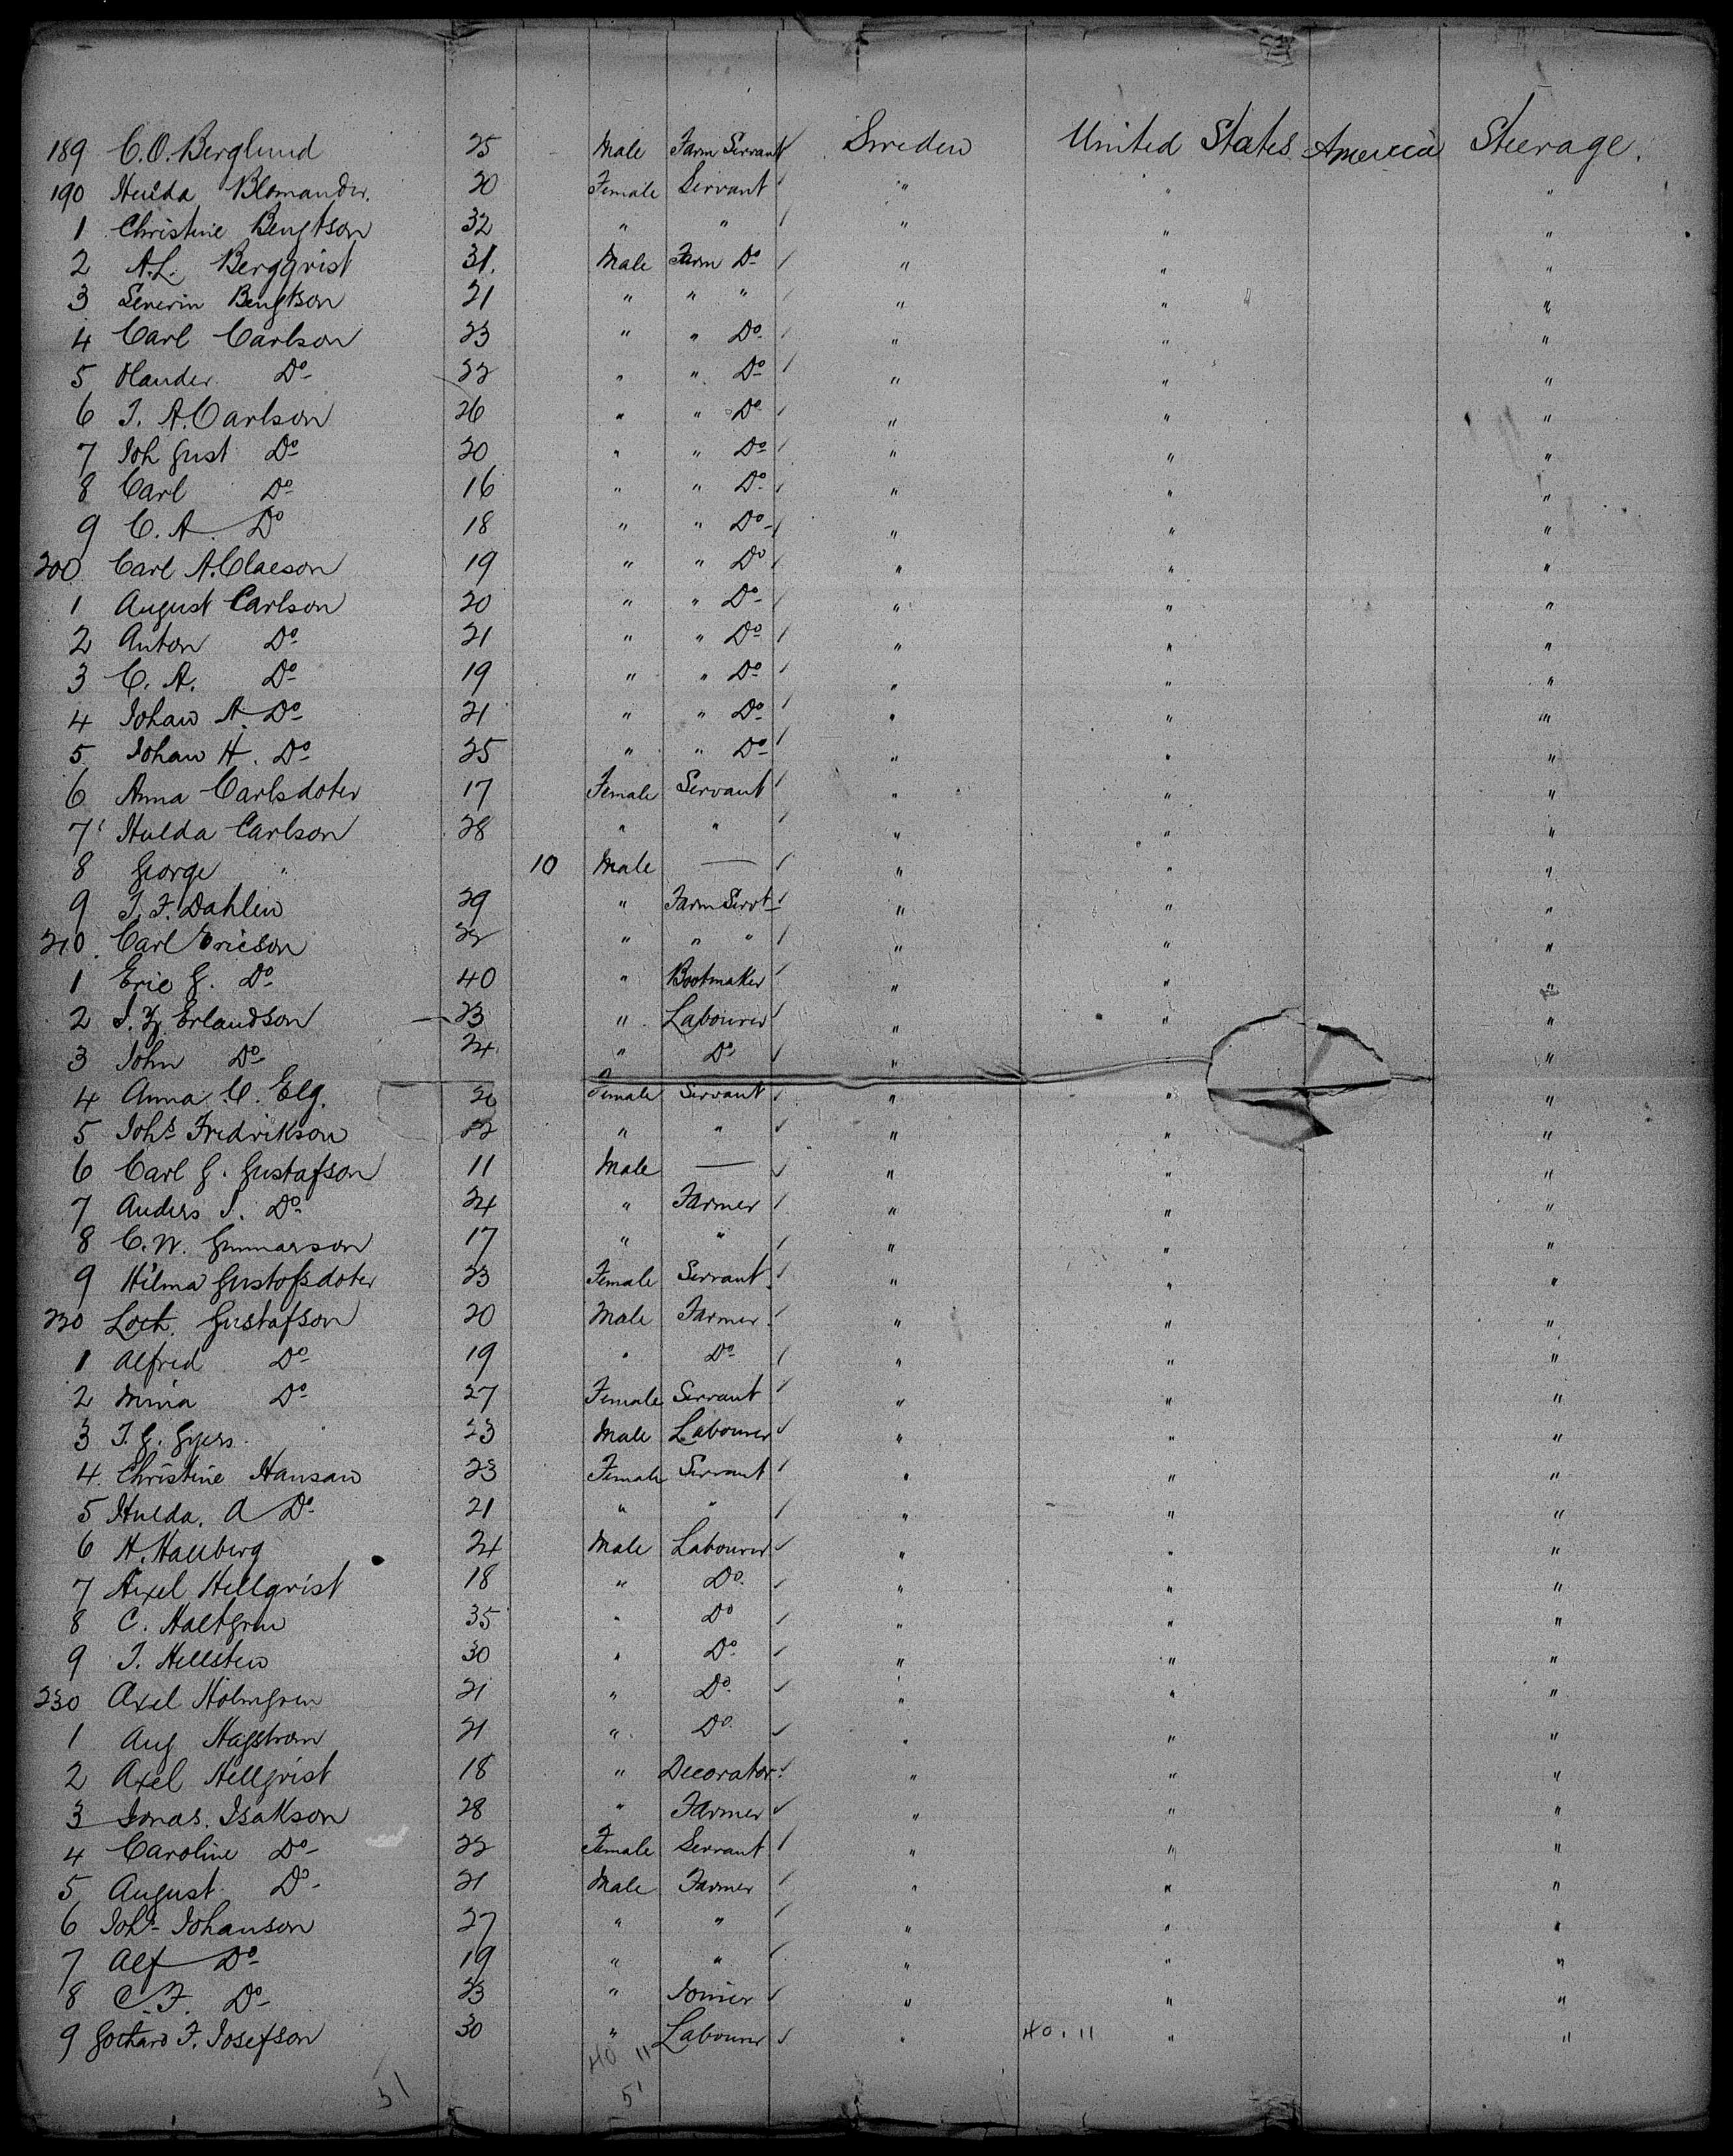 189 C.O. Berglund 25 Male Farm Servant Sweden United States America Steerage.
190 Hulda Blomander. 20 Female Servant " " "
1 Christine Bengtson 32 " " " " "
2 A.L. Bergqvist 31. Male Farm Do " " "
3 Severin Bengtson 21 " " " " " "
4 Carl Carlson 23 " " Do " " "
5 Olander Do 22 " " Do " " "
6 J. A. Carlson 26 " " Do " " "
7 Joh Gust Do 20 " " Do " " "
8 Carl Do 16 " " Do " " "
9 C. A. Do 18 " " Do " " "
200 Carl A. Claeson 19 " " Do " " "
1 August Carlson 20 " " Do " " "
2 Anton Do 21 " " Do " " "
3 C. A. Do 19 " " Do " " "
4 Johan A. Do 21 " " Do " " "
5 Johan H. Do 25 " " Do " " "
6 Anna Carlsdoter 17 Female Servant " " "
7 Hulda Carlson 28 " " " " "
8 George " 10 Male — " " "
9 J. F. Dahlen 29 " Farm Servt " " "
210. Carl Ericson 22 " " " " " "
1 Eric G. Do 40 " Bootmaker " " "
2 Erlandson 23 " Labourer " " "
3 John Do 24 " Do " " "
4 Anna C. Elg. 20 Female Servant " " "
5 Johs Fredrikson 22 " " " " "
6 Carl G. Gustafson 11 Male — " " "
7 Anders J. Do 24 " Farmer " " "
8 C. W. Gunnarson 17 " " " " "
9 Hilma Gustofsdoter 23 Female Servant " " "
220 Gustafson 20 Male Farmer " " "
1 Alfred Do 19 " Do " " "
2 Mina Do 27 Female Servant " " "
3 J. G. Gyers 23 Male Labourer " " "
4 Christine Hansan 23 Female Servant " " "
5 Hulda. A Do 21 " " " " "
6 H. Hallberg 24 Male Labourer " " "
7 Axel Hellqvist 18 " Do " " "
8 C. Haltgren 35 " Do " " "
9 J. Hellsten 30 " Do " " "
230 Axel Holmgren 21 " Do " " "
1 Aug Hagstrom 21 " Do " " "
2 Axel Hellqvist 18 " Decorator " " "
3 Jonas. Isakson 28 " Farmer " " "
4 Caroline Do 22 Female Servant " " "
5 August Do 21 Male Farmer " " "
6 Johs Johanson 27 " " " " "
7 Alf Do 19 " " " " "
8 C. F. Do 23 " Joiner " " "
9 Gothard F. Josefson 30 " Labourer " 40. 11 " "
40 11
51 51